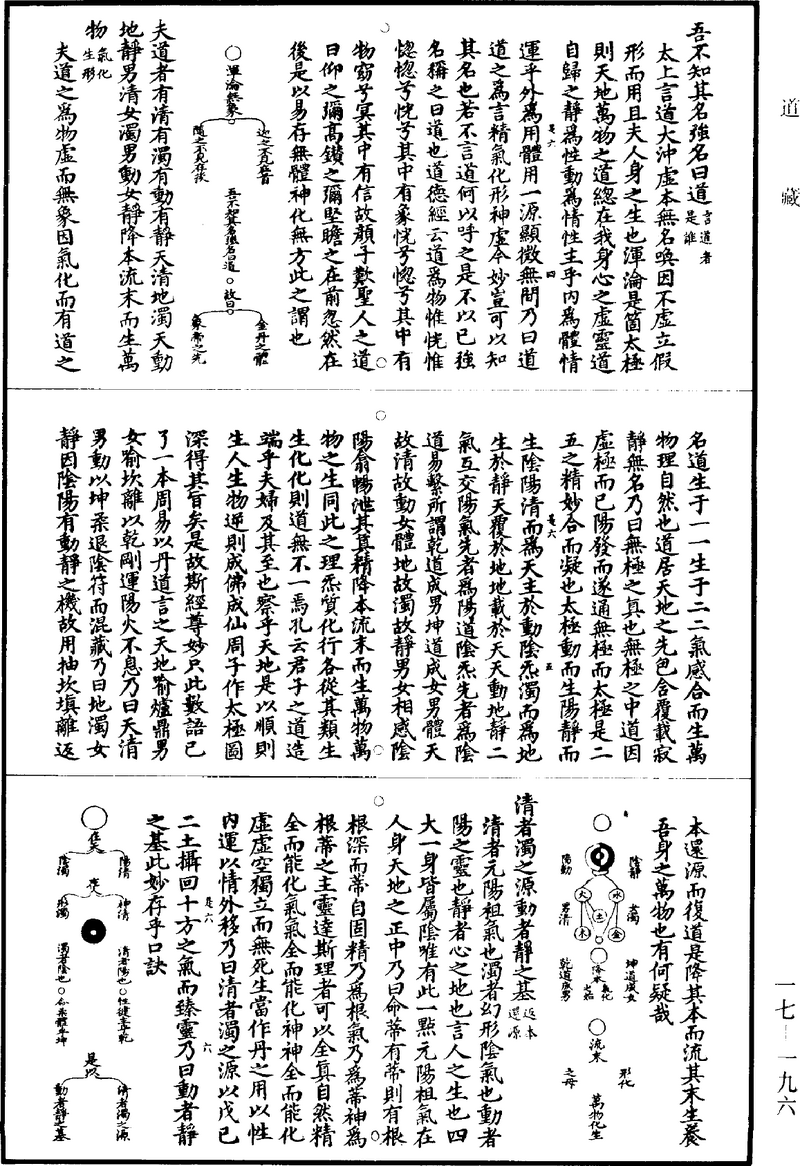 道藏
一七—一九六
吾不知其名強名曰道 言道者是誰
太上言道大沖虛本無名喚因不虛立假
形而用且夫人身之生也渾淪是箇太極
則天地萬物之道總在我身心之虛靈道
自歸之靜爲性動爲情性主乎內爲體情
運乎外爲用體用一源顯微無間乃曰道
道之爲言精氣化形神虛今妙豈可以知
其名也若不言道何以呼之是不以已強
名稱之曰道也道德經云道爲物惟恍惟
惚惚兮恍兮其中有象恍兮惚兮其中有
物窈兮冥其中有信故顏子歎聖人之道
曰仰之彌高鑽之彌堅瞻之在前忽然在
後是以易存無體神化無方此之謂也
渾淪無象
迎之不見其首
隨之不見其後
吾不知其名強名曰道
故曰
金丹之體
象帝之先
夫道者有清有濁有動有靜天清地濁天動
地靜男清女濁男動女靜降本流末而生萬
物 氣化生形
夫道之爲物虛而無象因氣化而有道之
名道生于一一生于二二氣感合而生萬
物理自然也道居天地之先包含覆載寂
靜無名乃曰無極之真也無極之中道因
虛極而已陽發而遂通無極而太極是二
五之精妙合而凝也太極動而生陽靜而
生陰陽清而爲天主於動陰炁濁而爲地
生於靜天覆於地地載於天天動地靜二
氣互交陽氣先者爲陽道陰炁先者爲陰
道易繫所謂乾道成男坤道成女男體天
故清故動女體地故濁故靜男女相感陰
陽翕暢泄其真精降本流末而生萬物萬
物之生同此之理炁質化行各從其類生
生化化則道無不一焉孔云君子之道造
端乎夫婦及其至也察乎天地是以順則
生人生物逆則成佛成仙周子作太極圖
深得其旨矣是故斯經尊妙只此數語已
了一本周易以丹道言之天地喻爐鼎男
女喻坎離以乾剛運陽火不息乃曰天清
男動以坤柔退陰符而混藏乃曰地濁女
靜因陰陽有動靜之機故用抽坎填離返
本還源而復道是降其本而流其末生養
吾身之萬物也有何疑哉
陰靜
陽動
水
火
土
金
木
男清
女濁
坤道成女
乾道成男
降本
氣化
流末
形化
之母
萬物化生
清者濁之源動者靜之基 返本還源
清者元陽祖氣也濁者幻形陰氣也動者
陽之靈也靜者心之地也言人之生也四
大一身皆屬陰唯有此一點元陽祖氣在
人身天地之正中乃曰命蒂有蒂則有根
根深而蒂自固精乃爲根氣乃爲蒂神爲
根蒂之主靈達斯理者可以全真自然精
全而能化氣氣全而能化神神全而能化
虛虛空獨立而無死生當作丹之用以性
內運以情外移乃曰清者濁之源以戊己
二土攝回十方之氣而臻靈乃曰動者靜
之基此妙存乎口訣
在天
陽清
陰濁
神清
形濁
清者陽也
性健喜乾
濁者陰也
是以
清者濁之源
動者靜之基